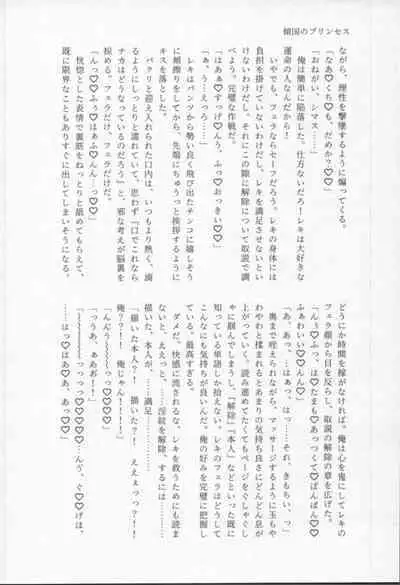 傾国のプリンセス
ながら、理性を撃墜するように煽ってくる。
「なあ♡くち♡も、だめか？♡♡」
「おねがい、シマス……」
俺は簡単に陥落した。仕方ないだろ！レキは大好きな
運命の人なんだから！
いやでも、フェラならセーフだろう。レキの身体には
負担を掛けていないわけだし、レキを満足させないとい
けないわけだし。それにこの隙に解除について取説で調
べよう。完璧な作戦だ。
「はあぁ♡すっげ♡んう、ふっ♡おっきぃ♡♡」
「ぁ、う…えろ……」
レキはパンツから勢い良く飛び出たチンコに嬉しそう
に頬擦りをしてから、先端にちゅうっと挨拶するように
キスを落とした。
パクリと迎え入れられた口内は、いつもより熱く、滴
るようにしっとりと濡れていて、思わず『口でこれなら
ナカはどうなっているのだろう』と、邪な考えが脳裏を
掠める。フェラだけ、フェラだけだ。
「んっ♡♡ふぅ♡はぁふ♡んん♡♡」
恍惚とした表情で裏筋をねっとりと舐めてもらえて、
既に限界なこともありすぐに出してしまいそうになる。
どうにか時間を稼がなければ。俺は心を鬼にしてレキの
フェラ顔から目を反らし、取説の解除の章を広げた。
「んぅ♡ふっ、は♡たまも♡あっつくて♡ぱんぱん♡♡
ふぁわいい♡♡んん♡」
「あ、あっ、…はぁっ、はっ……それ、きもちい、っ」
奥まで咥えられながら、マッサージするように玉もや
わやわと揉まれるとあまりの気持ち良さにどんどん息が
上がっていく。読み進めてたくてもページをぐしゃぐし
ゃに掴んでしまうし、「解除」「本人」などといった既に
知っている単語しか拾えない。レキのフェラはどうして
こんなにも気持ちが良いんだ。俺の好みを完璧に把握し
ている。最高すぎる。
ダメだ、快感に流されるな、レキを救うためにも読ま
ないと、ええっと、……淫紋を解除、するには…………
描いた、本人が、……満足……
「描いた本人？！　描いた？！　ええぇっっ？！！
俺？？！！　俺じゃん！！！！」